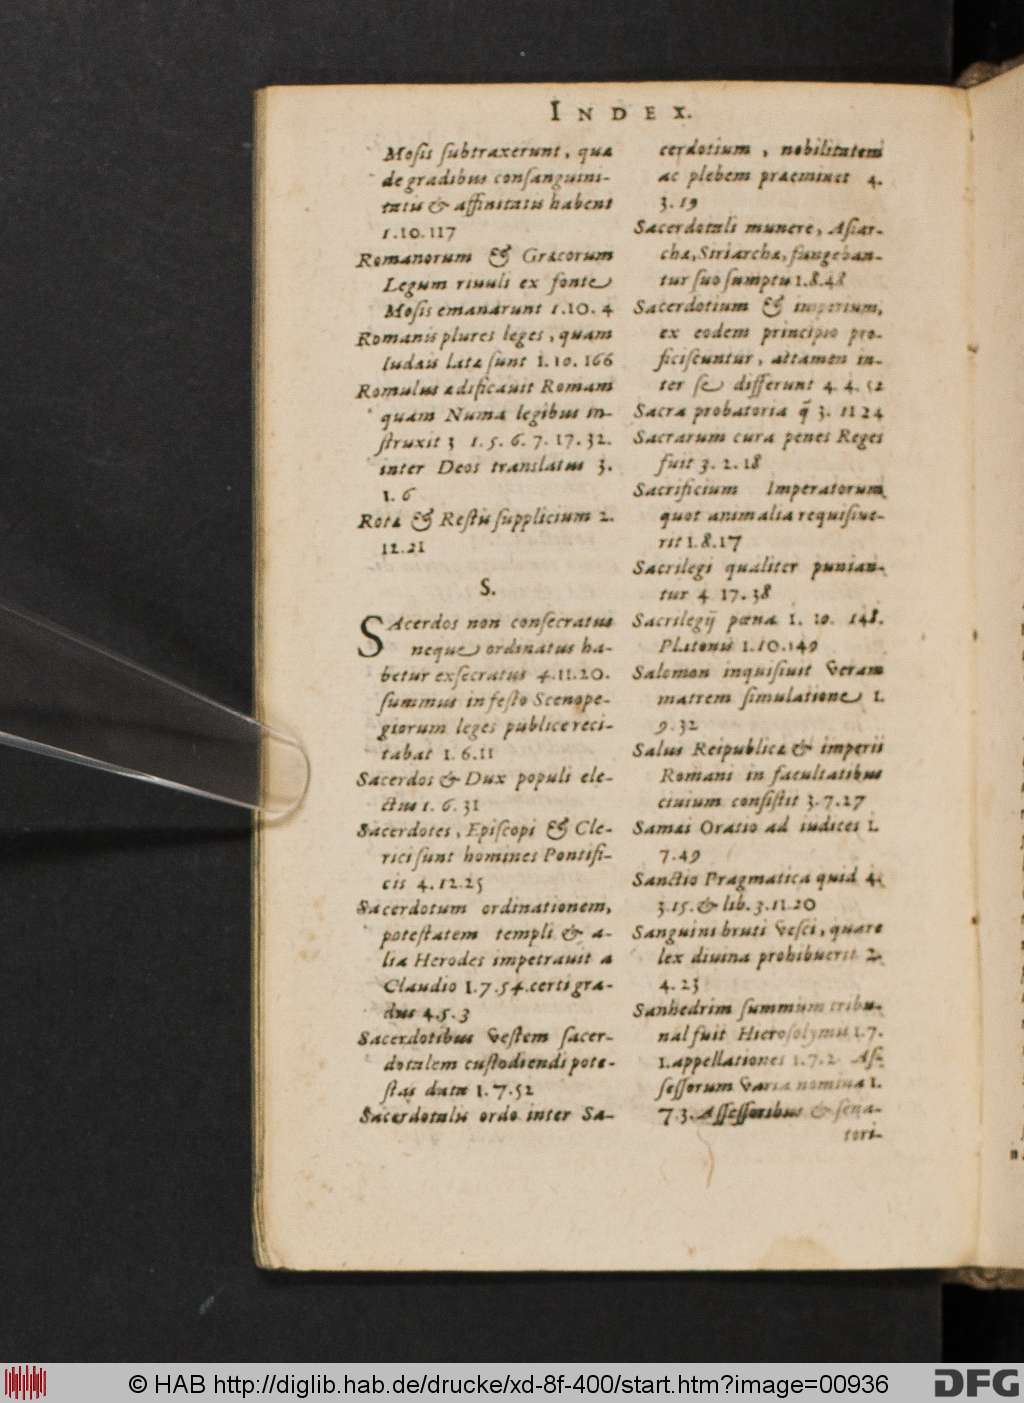 INDEX.
Mosis subtraxerunt, quæ
de gradibus consanguini-
tatis & affinitatis habent
1.10.117
Romanorum & Græcorum
Legum riuuli ex fonte
Mosis emanarunt 1.10.4
Romanis plures leges, quam
Iudæis latæ sunt 1.10.166
Romulus ædificauit Romam
quam Numa legibus in-
struxit 3 1.5.6.7.17.32.
inter Deos translatus 3.
1.6
Rotæ & Restis supplicium 2.
12.21
S.
SAcerdos non consecratus
neque ordinatus ha-
betur exsecratus 4.11.20.
summus in festo Scenope-
giorum leges publice reci-
tabat 1.6.11
Sacerdos & Dux populi ele-
ctus 1.6.31
Sacerdotes, Episcopi & Cle-
rici sunt homines Pontifi-
cis 4.12.25
Sacerdotum ordinationem,
potestatem templi & a-
lia Herodes impetrauit a
Claudio 1.7.54. certi gra-
dus 4.5.3
Sacerdotibus vestem sacer-
dotalem custodiendi pote-
stas data 1.7.52
Sacerdotalis ordo inter Sa-
cerdotium, nobilitatem
ac plebem præminet 4.
3.19
Sacerdotali munere, Asiar-
chæ, Siriarchæ, fungeban-
tur suo sumptu 1.8.48
Sacerdotium & imperium,
ex eodem principio pro-
ficiscuntur, attamen in-
ter se differunt 4.4.52
Sacra probatoria q̃ 3.11 24
Sacrarum cura penes Reges
fuit 3.2.18
Sacrificium Imperatorum
quot animalia requisiue-
rit 1.8.17
Sacrilegi qualiter punian-
tur 4 17.38
Sacrilegij pœna 1.10.148.
Platonis 1.10.149
Salomon inquisiuit veram
matrem simulatione 1.
9.32
Salus Reipublicæ & imperii
Romani in facultatibus
ciuium consistit 3.7.27
Samai Oratio ad iudices 1.
7.49
Sanctio Pragmatica quid 4.
3.15. & lib.3.11.20
Sanguini bruti vesci, quare
lex diuina prohibuerit 2.
4.23
Sanhedrim summum tribu-
nal fuit Hierosolymis 1.7.
1. appellationes 1.7.2. As-
sessorum varia nomina 1.
7 3. Assessoribus & sena-
tori-
© HAB http://diglib.hab.de/drucke/xd-8f-400/start.htm?image=00936
DFG